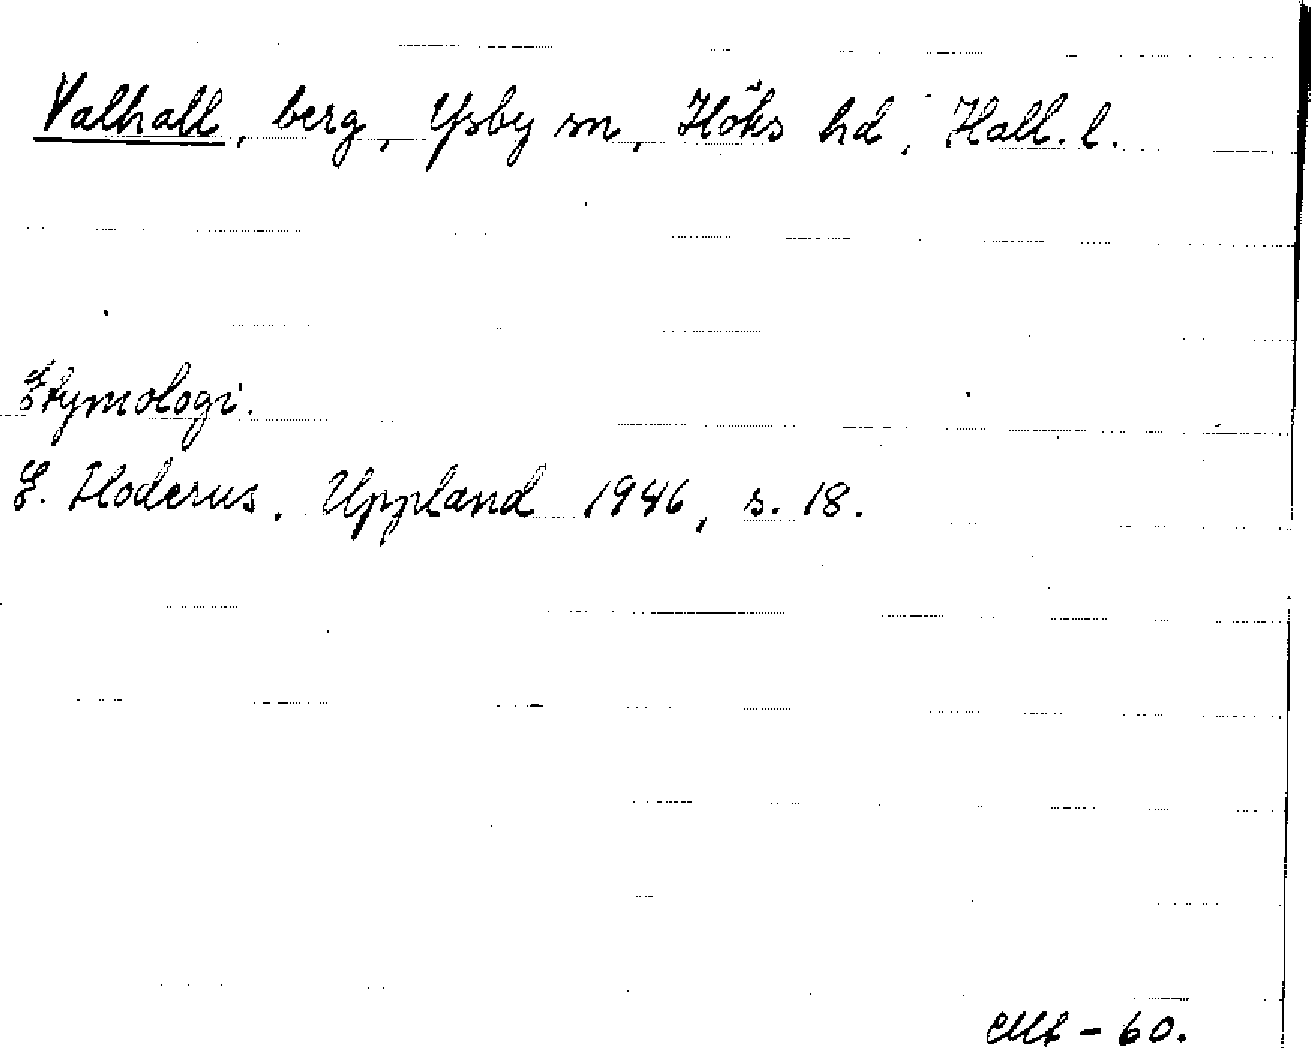 Valhall, berg, Ysby sn, Höks hd, Hall. l.
Etymologi.
E. Floderus. Uppland 1946, s. 18.